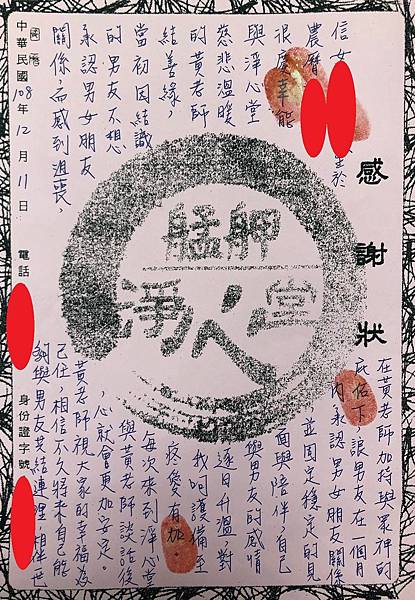 感謝狀
信女 生於
農曆
很慶幸能
與淨心堂
慈悲溫暖
的黃老師
結善緣，
當初因結識
的男友不想
承認男女朋友
關係而感到沮喪，
在黃老師加持與眾神的
庇佑下讓男友在一個月
內承認男女朋友關係
，並固定穩定的見
面與陪伴，自己
與男友的感情
逐日升溫對
我呵護備至
疼愛有加。
每次來到淨心堂
與黃老師談話後
，心就會更加安定。
黃老師視大家的幸福為
己任，相信不久將來自己能
夠與男友共結連理 相伴世
艋舺
淨心堂
國曆
中華民國108年12月11日 電話 身份證字號